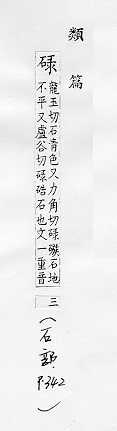 類篇
碌 龍玉切石青色又力角切碌䃁石地
不平又盧谷切碌碡石也文一重音
三
（石部 P.342）